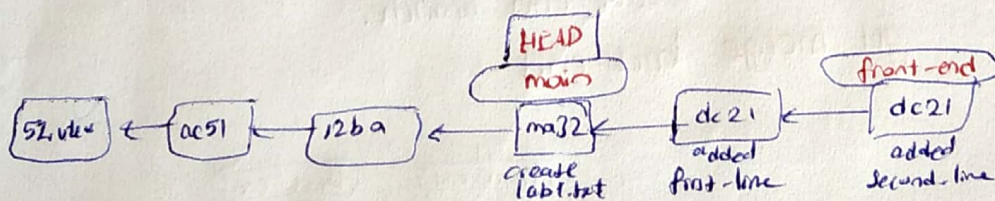 HEAD
main
front-end
ac51
12ba
ma32
dc21
dc21
create
lab1.txt
added
first-line
added
second-line